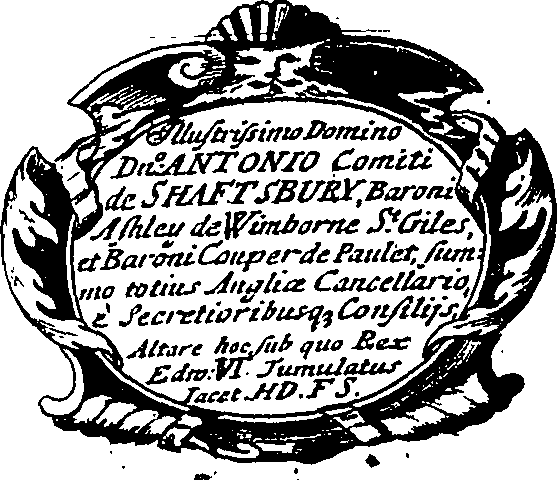 Illustrissimo Domino
Dno. ANTONIO Comiti
de SHAFTSBURY, Baroni
Ashley de Wimborne St. Giles,
et Baroni Couper de Paulet, sum=
mo totius Angliæ Cancellario,
è Secretioribusqꝫ Consilijs,
Altare hoc, sub quo Rex
Edw: VI. Tumulatus
Jacet. HD. FS.